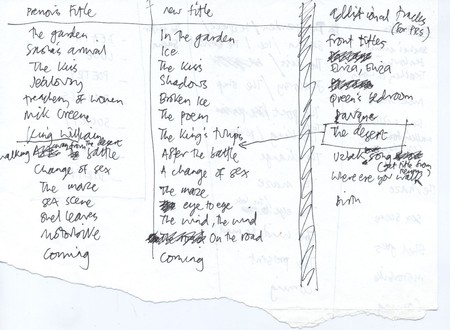 previous title new title additional tracks
(for PRS)
The garden In the garden front titles
Sasha's arrival Ice
The Kiss The Kiss Eliza, Eliza
Jealousy Shadows Queen's bedroom
treachery of women Broken Ice Pavane
Nick Greene The poem The desert
King William The King's
walking away from the desert battle After the battle song
(get title from
Change of sex A change of sex were ere you walk
The maze The maze birth
sex scene eye to eye
dead leaves The wind, the wind
motorbike On the road
Coming Coming